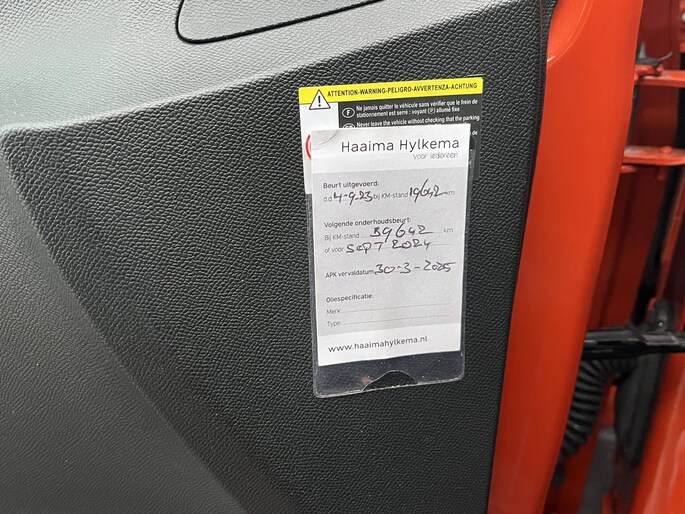 ATTENTION-WARNING-PELIGRO-AVVERTENZA-ACHTUNG
F Ne jamais quitter le véhicule sans vérifier que le frein de
stationnement est serré : voyant (P) allumé fixe
GB Never leave the vehicle without checking that the parking
Haaima Hylkema
voor iedereen
Beurt uitgevoerd:
d.d. 4-9-23 bij KM-stand 19642 km
Volgende onderhoudsbeurt:
Bij KM-stand 39642 km
of vóór Sept 2024
APK vervaldatum 30-3-2025
Oliespecificatie:
Merk:
Type:
www.haaimahylkema.nl